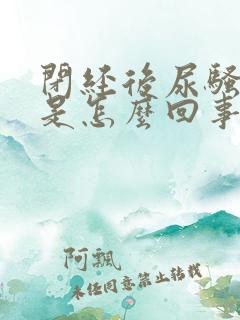 閉経後尿騷
是怎麼回事
阿飄
未经同意禁止转载